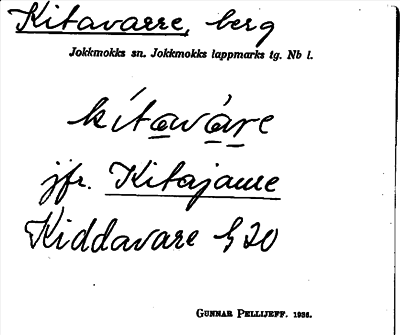 Kitavarre, berg
Jokkmokks sn. Jokkmokks lappmarks tg. Nb l.
kítavàre
jfr. Kitajaure
Kiddavare G 20
GUNNAR PELLIJEFF. 1936.